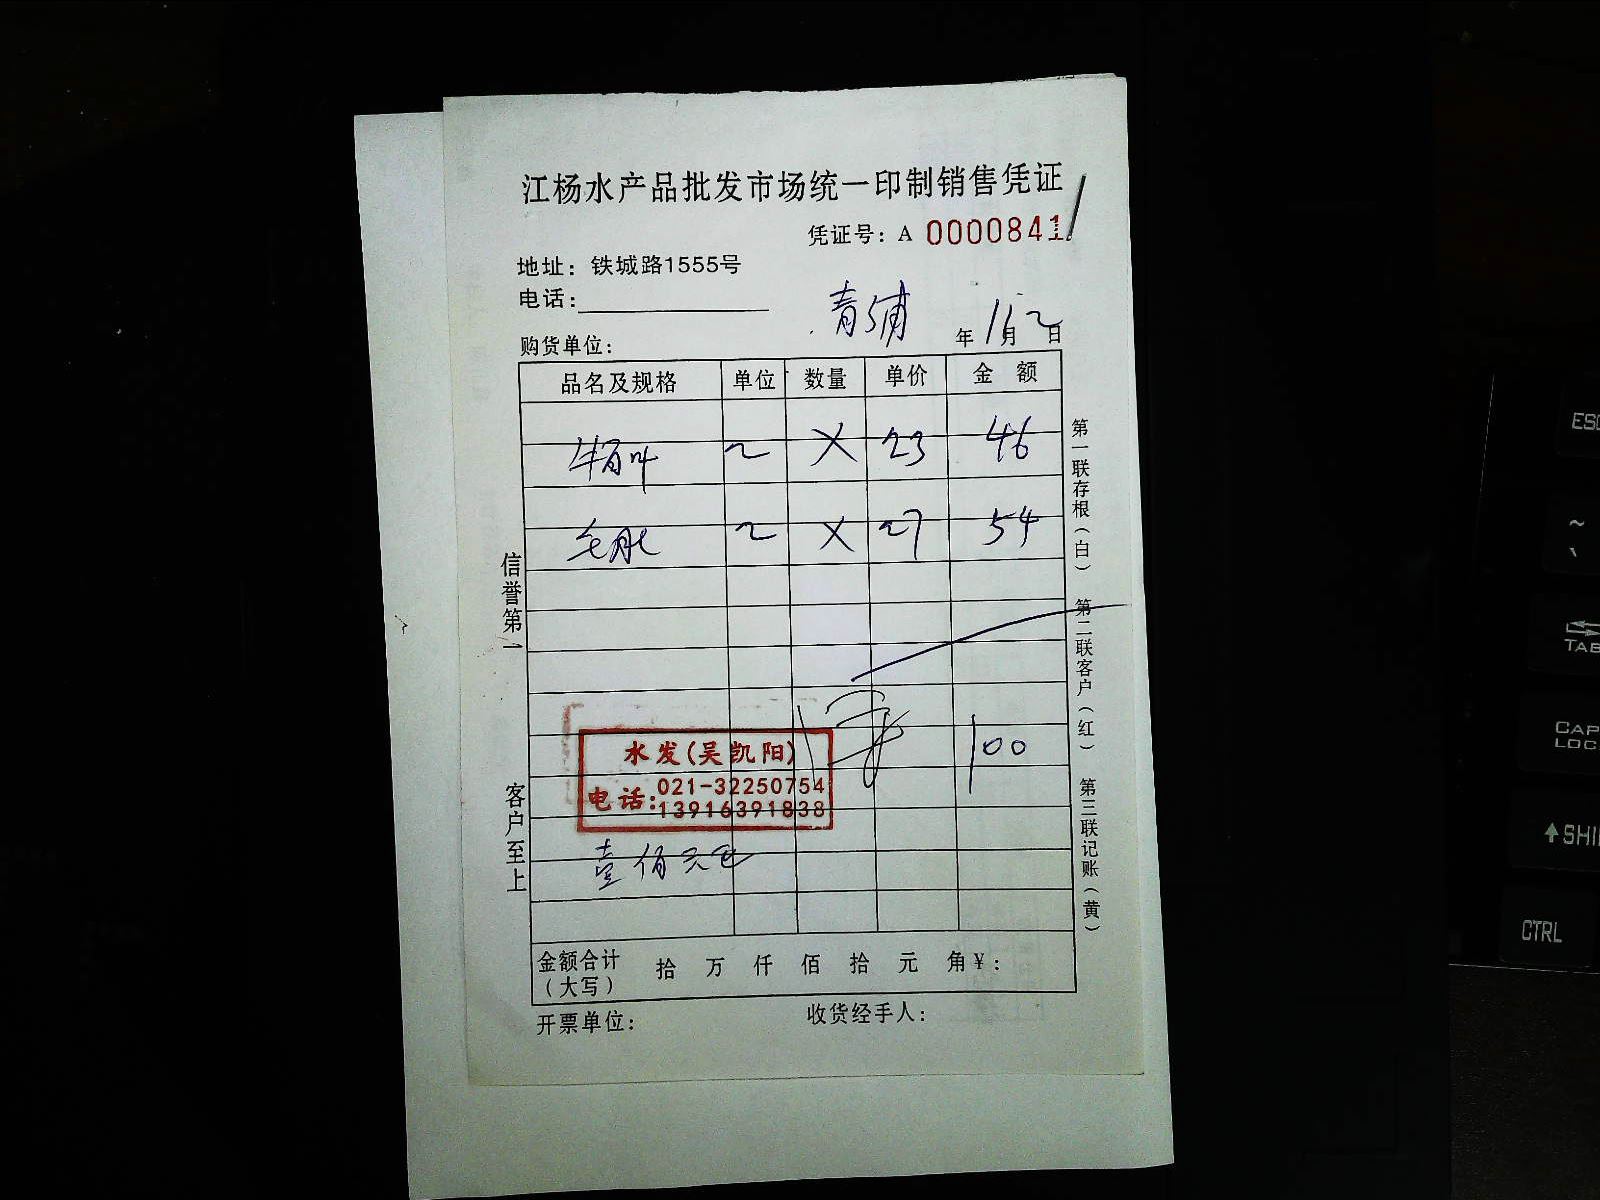 江杨水产品批发市场统一印制销售凭证
凭证号：A 0000841
地址：铁城路1555号
电话：
青浦
年 11月 2日
购货单位：
品名及规格 单位 数量 单价 金 额
牛百叶 2 X 23 46
毛肚 2 X 27 54
100
水发(吴凯阳)
电话：021-32250754
13916391838
壹佰元
金额合计（大写） 拾 万 仟 佰 拾 元 角￥：
开票单位： 收货经手人：
信誉第一
客户至上
第一联存根（白） 第二联客户（红） 第三联记账（黄）
ESC
~
TAB
CAPS
LOCK
SHI
CTRL